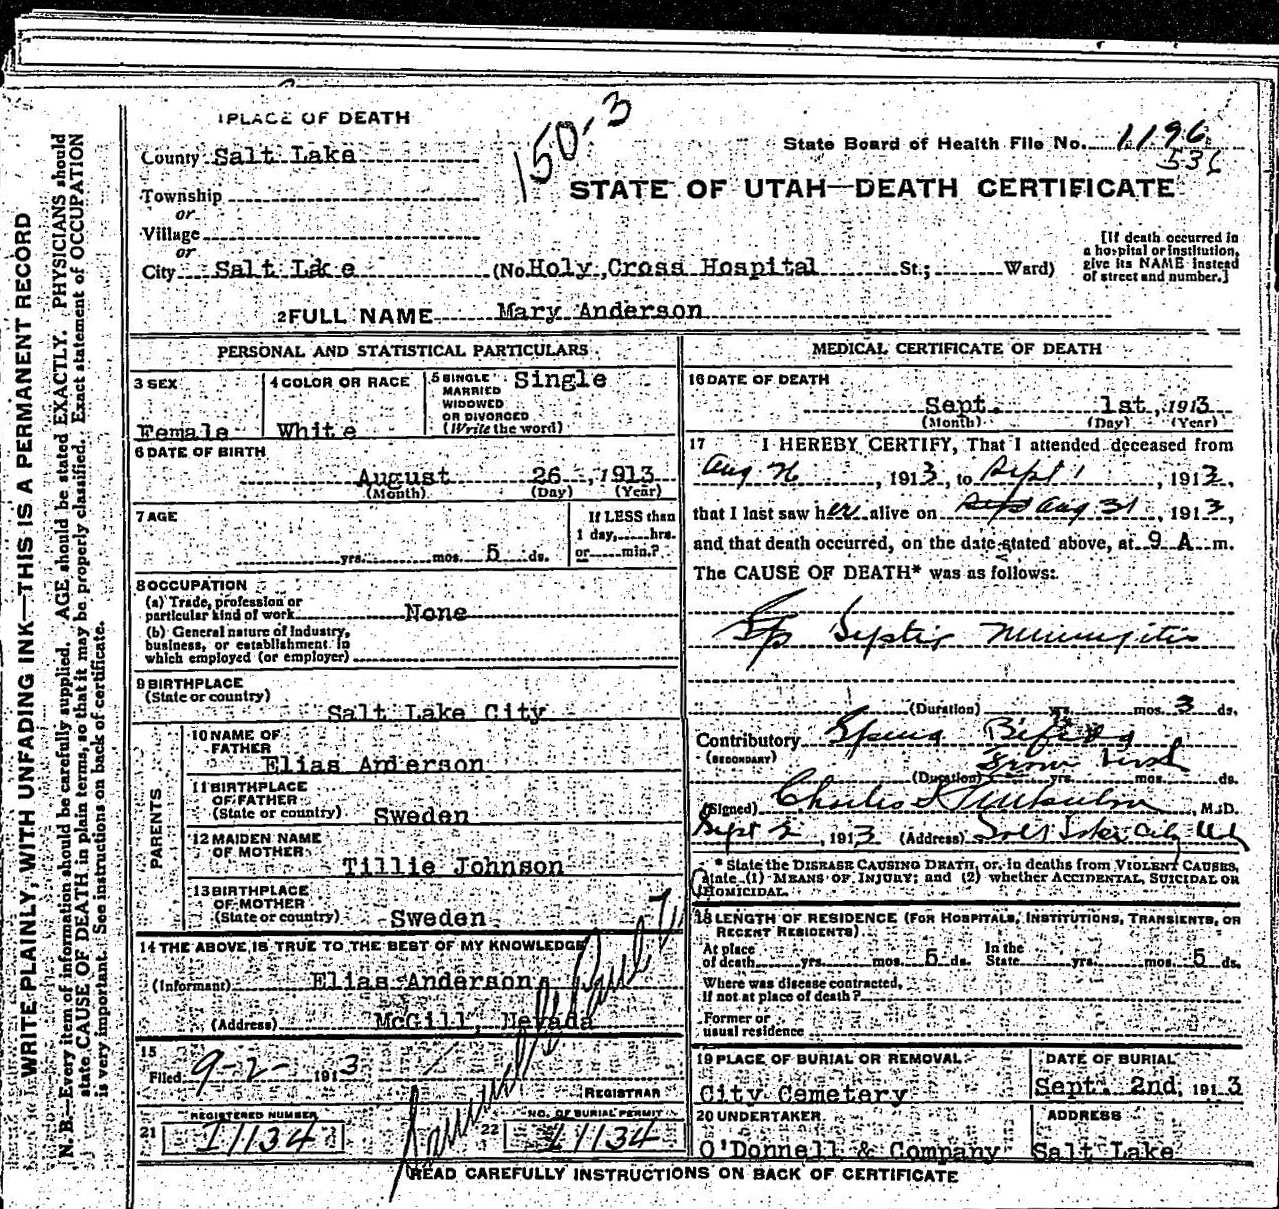 1 PLACE OF DEATH
150-3
County Salt Lake
State Board of Health File No. 1196
536
Township
or
STATE OF UTAH—DEATH CERTIFICATE
Village
or
City Salt Lake (No. Holy Cross Hospital St.; Ward)
[If death occurred in a hospital or institution, give its NAME instead of street and number.]
2 FULL NAME Mary Anderson
PERSONAL AND STATISTICAL PARTICULARS
3 SEX
Female
4 COLOR OR RACE
White
5 SINGLE MARRIED WIDOWED OR DIVORCED (Write the word)
Single
6 DATE OF BIRTH
August 26, 1913
(Month) (Day) (Year)
7 AGE
yrs. mos. 5 ds.
If LESS than 1 day, hrs. or min.?
8 OCCUPATION
(a) Trade, profession or particular kind of work None
(b) General nature of industry, business, or establishment in which employed (or employer)
9 BIRTHPLACE
(State or country)
Salt Lake City
PARENTS
10 NAME OF FATHER
Elias Anderson
11 BIRTHPLACE OF FATHER
(State or country) Sweden
12 MAIDEN NAME OF MOTHER
Tillie Johnson
13 BIRTHPLACE OF MOTHER
(State or country) Sweden
14 THE ABOVE IS TRUE TO THE BEST OF MY KNOWLEDGE
(Informant) Elias Anderson
(Address) McGill, Nevada
15
Filed 9-2- 1913
REGISTRAR
REGISTERED NUMBER
21 11134
NO. OF BURIAL PERMIT
22 11134
MEDICAL CERTIFICATE OF DEATH
16 DATE OF DEATH
Sept. 1st, 1913
(Month) (Day) (Year)
17 I HEREBY CERTIFY, That I attended deceased from
Aug 26, 1913, to Sept 1, 1913,
that I last saw her alive on Sept Aug 31, 1913,
and that death occurred, on the date stated above, at 9 A m.
The CAUSE OF DEATH* was as follows:
Septic Meningitis
(Duration) yrs. mos. 3 ds.
Contributory Spina Bifida
(SECONDARY)
From birth
(Duration) yrs. mos. ds.
(Signed) Charles M.D.
Sept 2, 1913 (Address) Salt Lake City Utah
* State the DISEASE CAUSING DEATH, or, in deaths from VIOLENT CAUSES, state (1) MEANS OF INJURY; and (2) whether ACCIDENTAL, SUICIDAL OR HOMICIDAL.
18 LENGTH OF RESIDENCE (FOR HOSPITALS, INSTITUTIONS, TRANSIENTS, OR RECENT RESIDENTS)
At place of death yrs. mos. 5 ds. In the State yrs. mos. 5 ds.
Where was disease contracted, if not at place of death?
Former or usual residence
19 PLACE OF BURIAL OR REMOVAL
City Cemetery
DATE OF BURIAL
Sept. 2nd, 1913
20 UNDERTAKER
O'Donnell & Company
ADDRESS
Salt Lake
READ CAREFULLY INSTRUCTIONS ON BACK OF CERTIFICATE
WRITE PLAINLY, WITH UNFADING INK—THIS IS A PERMANENT RECORD
N. B.—Every item of information should be carefully supplied. AGE should be stated EXACTLY. PHYSICIANS should
state CAUSE OF DEATH in plain terms, so that it may be properly classified. Exact statement of OCCUPATION
is very important. See instructions on back of certificate.